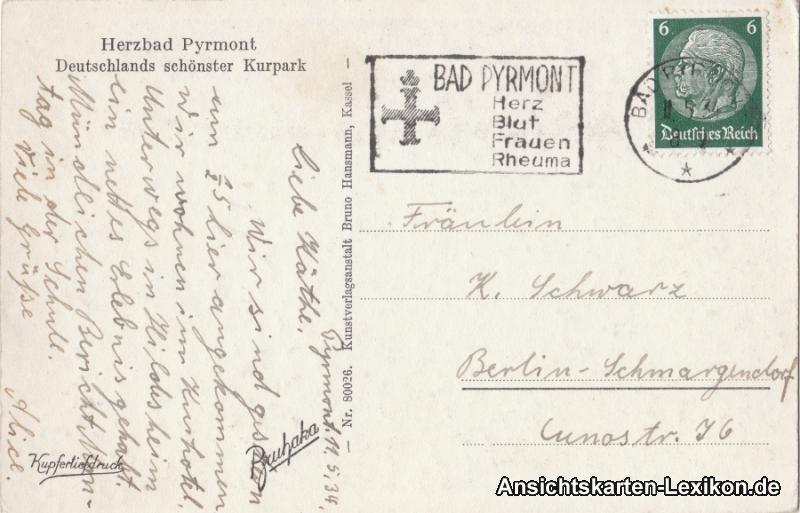 Herzbad Pyrmont
Deutschlands schönster Kurpark
Pyrmont. 11.5.34.
Liebe Käthe.
Wir sind gestern
um ½5 hier angekommen
wir wohnen im Kurhotel.
Unterwegs in Hildesheim
ein nettes Erlebnis gehabt
Mündlichen Bericht Mon-
tag in der Schule.
Viele Grüsse
Alice.
Kupfertiefdruck
Bruhaka
— Nr. 80026. Kunstverlagsanstalt Bruno Hansmann, Kassel —
BAD PYRMONT
Herz
Blut
Frauen
Rheuma
6 6
Deutsches Reich
BAD PYRMONT
Fräulein
K. Schwarz
Berlin-Schmargendorf
Cunostr. 76
Ansichtskarten-Lexikon.de